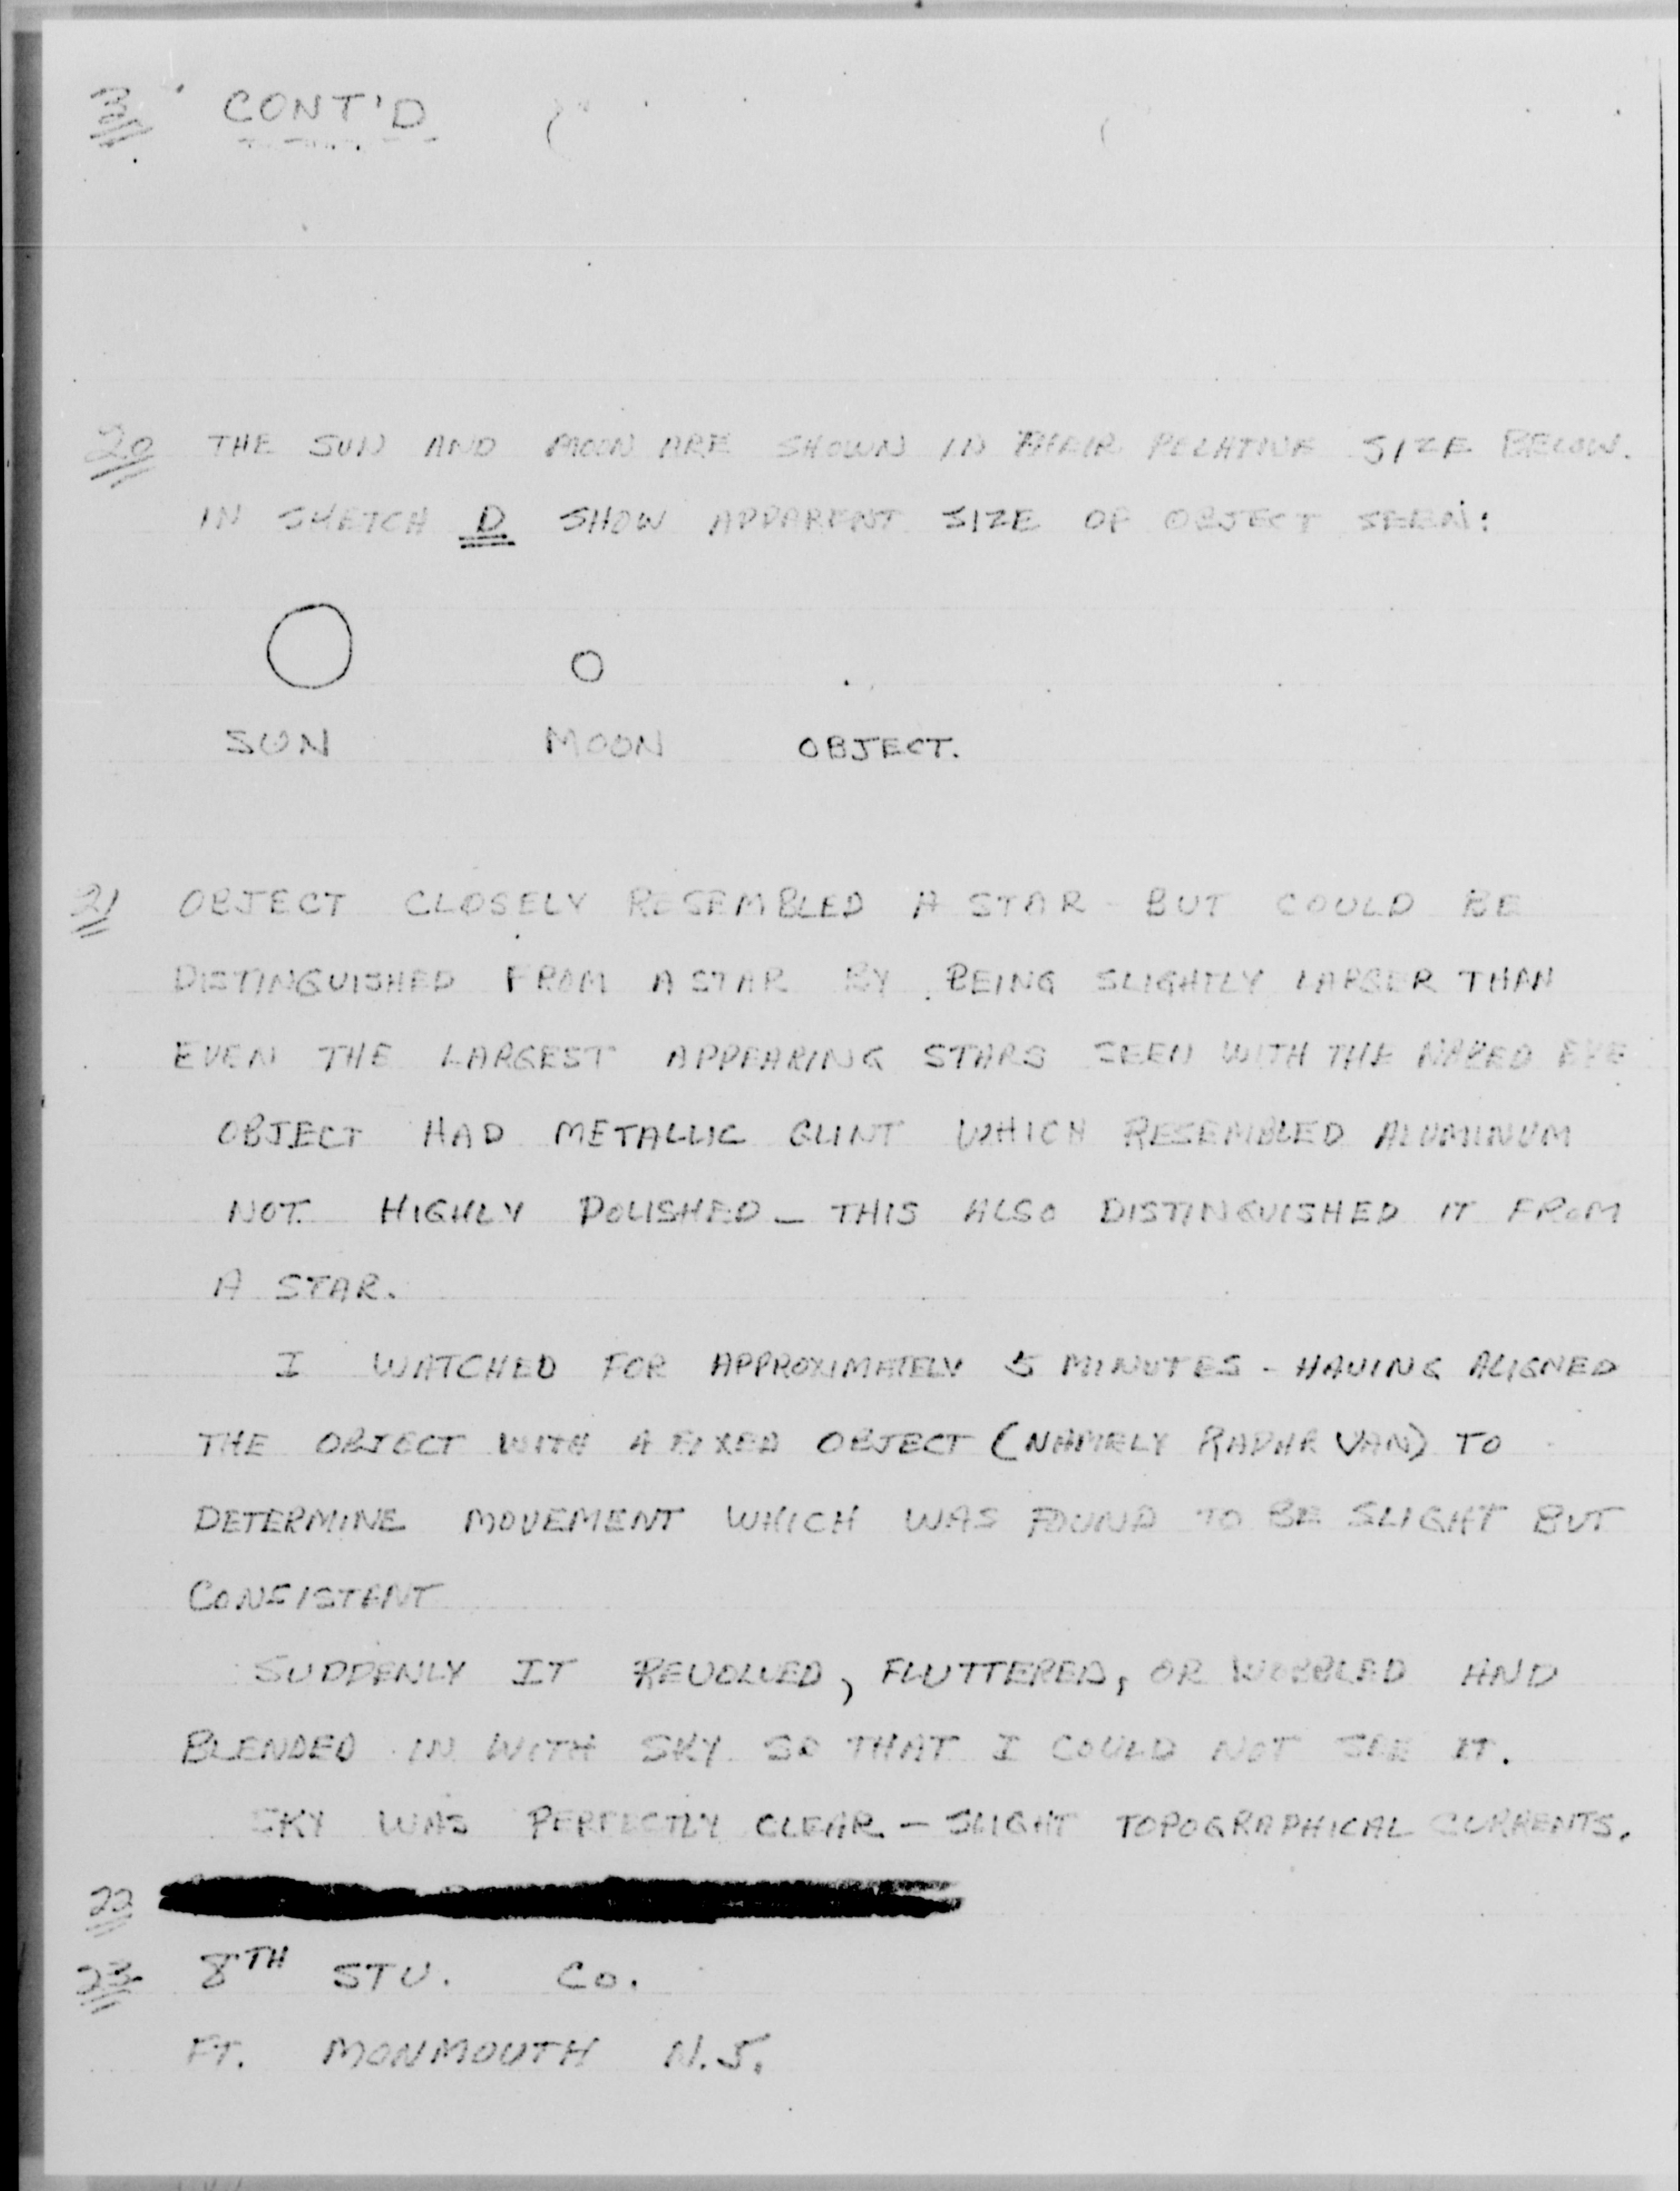 CONT'D
20 THE SUN AND MOON ARE SHOWN IN THEIR RELATIVE SIZE BELOW.
IN SKETCH D SHOW APPARENT SIZE OF OBJECT SEEN:
SUN MOON OBJECT.
21 OBJECT CLOSELY RESEMBLED A STAR - BUT COULD BE
DISTINGUISHED FROM A STAR BY BEING SLIGHTLY LARGER THAN
EVEN THE LARGEST APPEARING STARS SEEN WITH THE NAKED EYE
OBJECT HAD METALLIC GLINT WHICH RESEMBLED ALUMINUM
NOT HIGHLY POLISHED - THIS ALSO DISTINGUISHED IT FROM
A STAR.
I WATCHED FOR APPROXIMATELY 5 MINUTES - HAVING ALIGNED
THE OBJECT WITH A FIXED OBJECT (NAMELY RADAR VAN) TO
DETERMINE MOVEMENT WHICH WAS FOUND TO BE SLIGHT BUT
CONSISTANT
SUDDENLY IT REVOLVED, FLUTTERED, OR WOBBLED AND
BLENDED IN WITH SKY SO THAT I COULD NOT SEE IT.
SKY WAS PERFECTLY CLEAR - SLIGHT TOPOGRAPHICAL CURRENTS.
22
23 8TH STU. CO.
FT. MONMOUTH N.J.